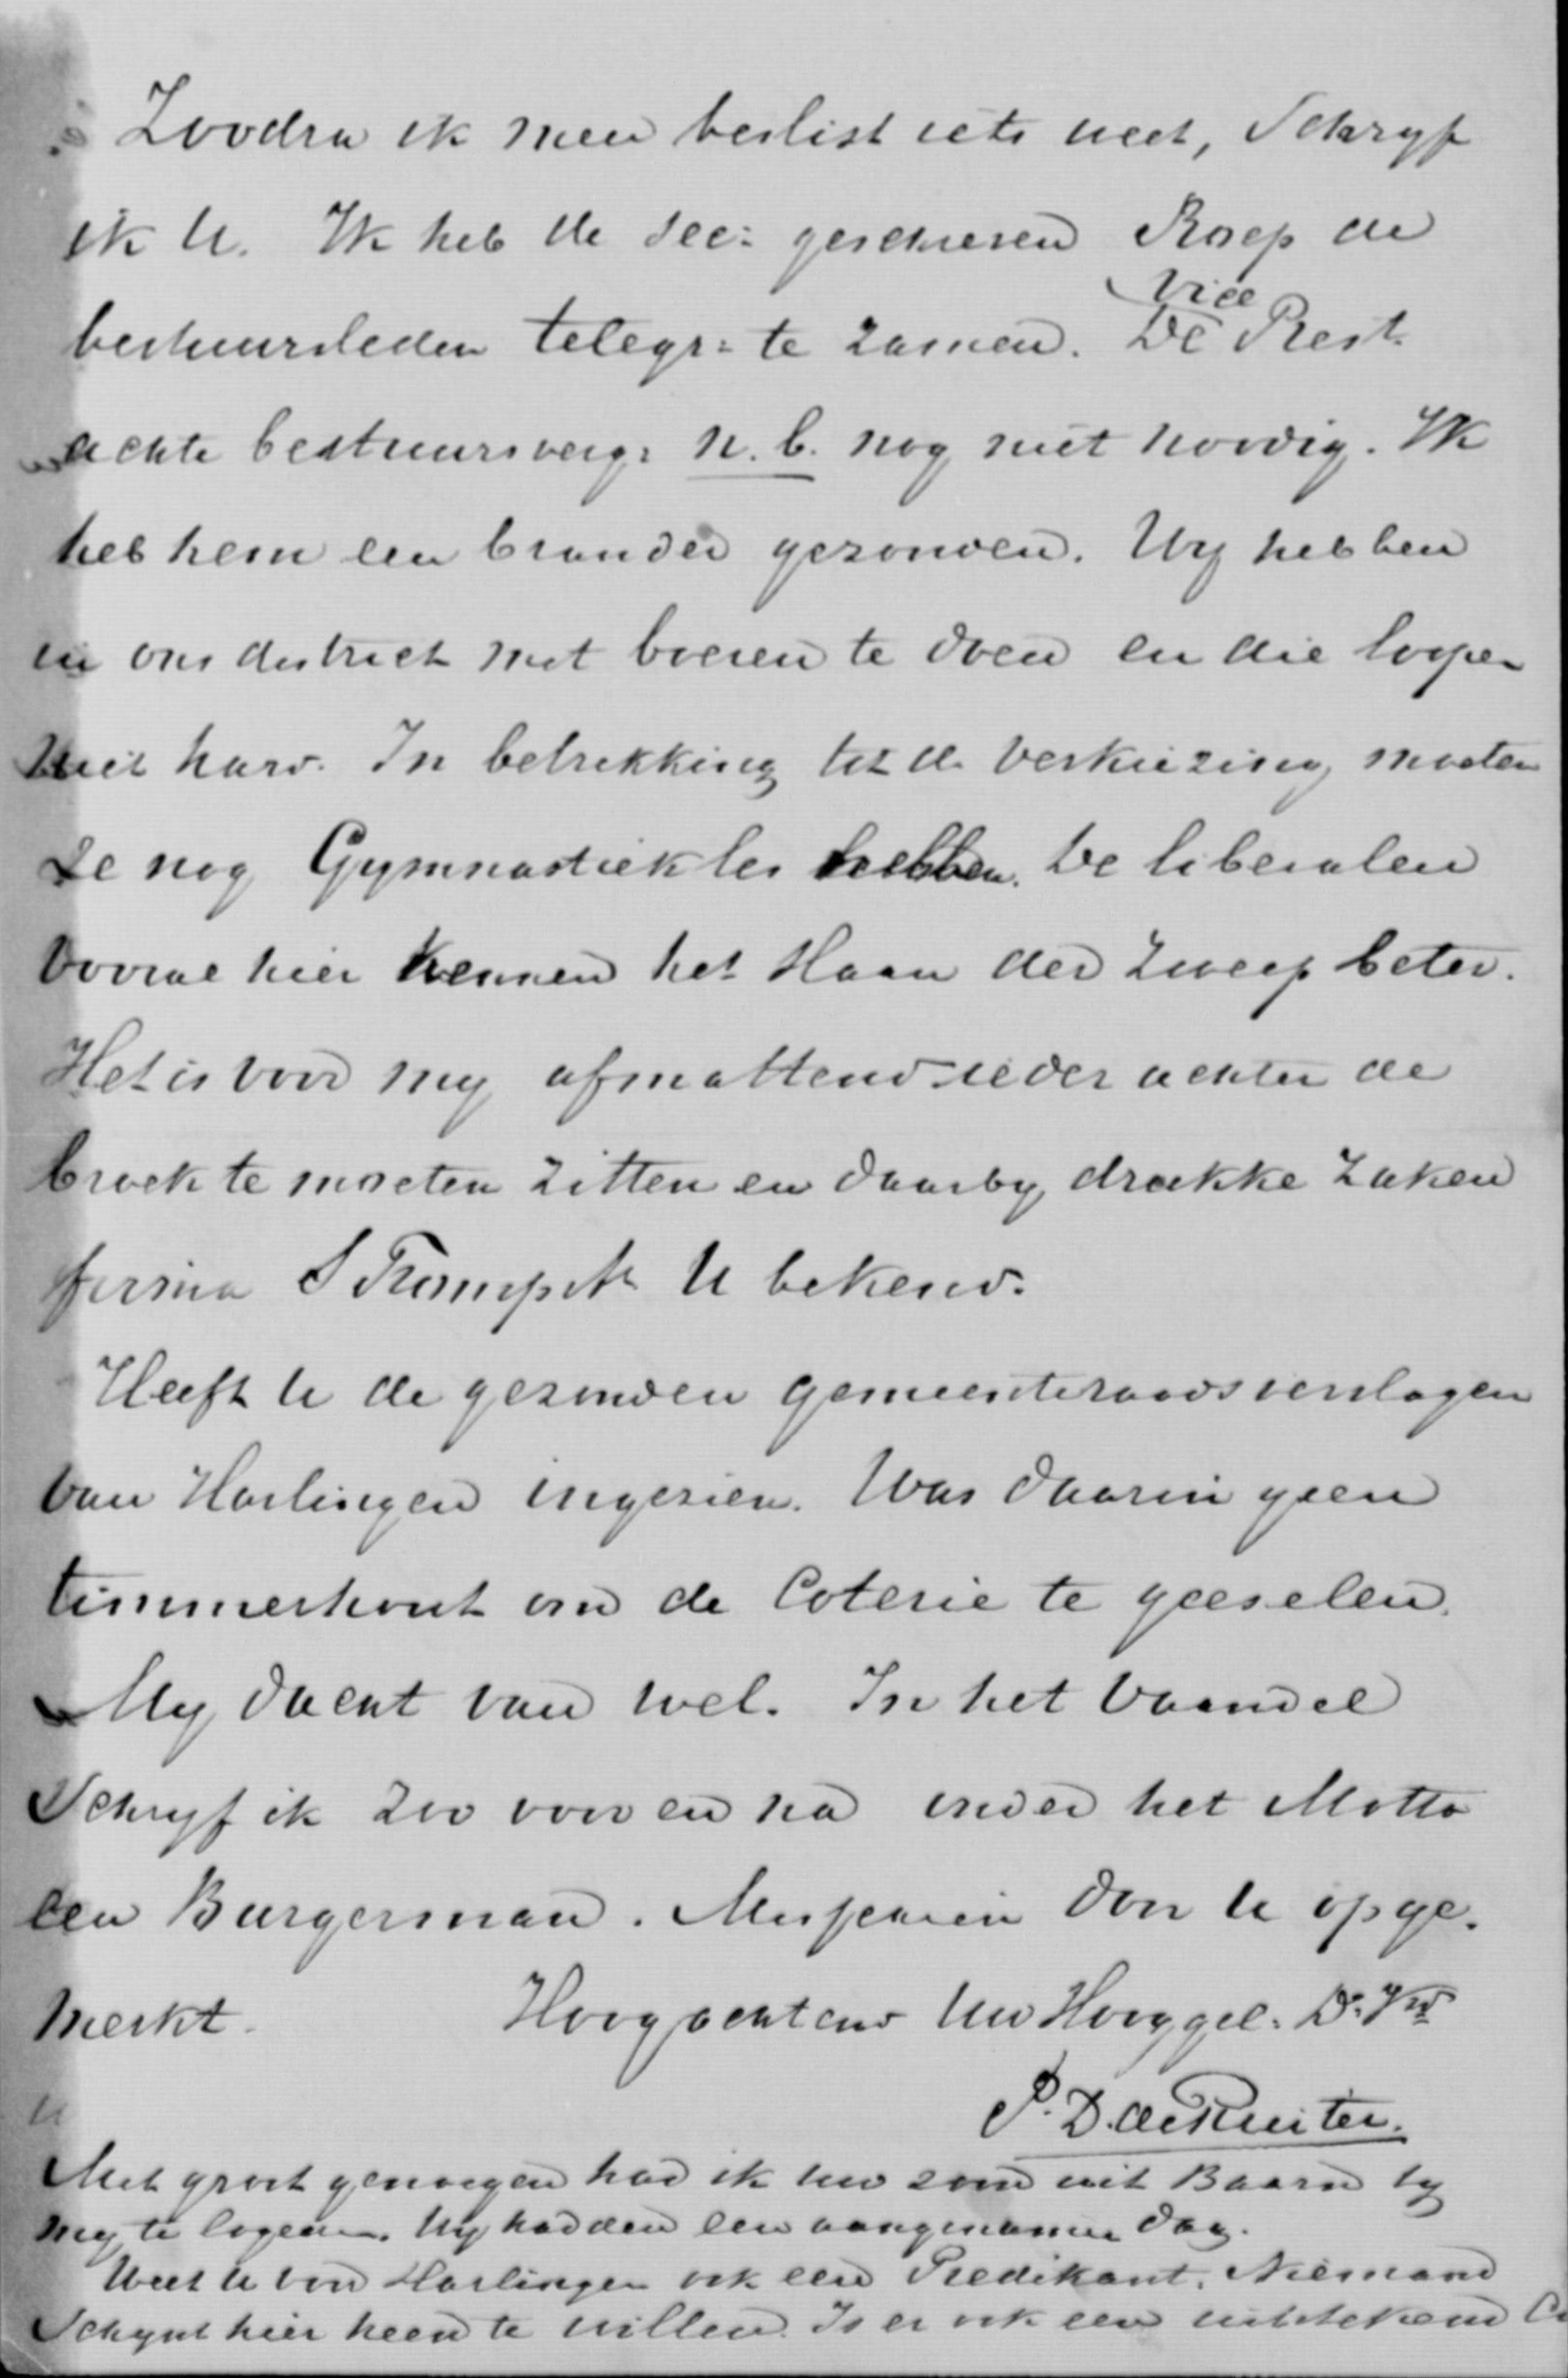 Zoodra ik meer beslist iets weet, Schryf
ik U. Ik heb de Sec: geschreven Roep de
bestuursleden telegr: te zamen. De Vice Prest.
achte bestuursverg: n.b. nog niet noodig. Ik
heb hem een brander gezonden. Wy hebben
in ons district met boeren te doen en die loopen
niet hard. In betrekking tot de verkiezing moeten
ze nog Gymnastiekles hebben. De liberalen
vooral hier kennen het Slaan der Zweep beter.
Het is voor my afmattend ieder achter de
broek te moeten zitten en daarby drukke zaken
firma S Tromp U bekend.
Heeft U de gezonden gemeenteraadsverslagen
van Harlingen ingezien. Was daarin geen
timmerhout om de Coterie te geeselen.
My dacht van wel. In het Vaandel
Schryf ik zoo voor en na onder het Motto
een Burgerman. Misschien door U opge-
merkt. Hoogachtend Uw Hooggel. Dr. Vrd
P. D. de Ruiter.
Met groot genoegen had ik Uw zoon uit Baarn by
my te logeeren. Wy hadden een aangenamen dag.
Weet U voor Harlingen ook een Predikant. Niemand
Schynt hier heen te willen. Is er ook een uitstekend